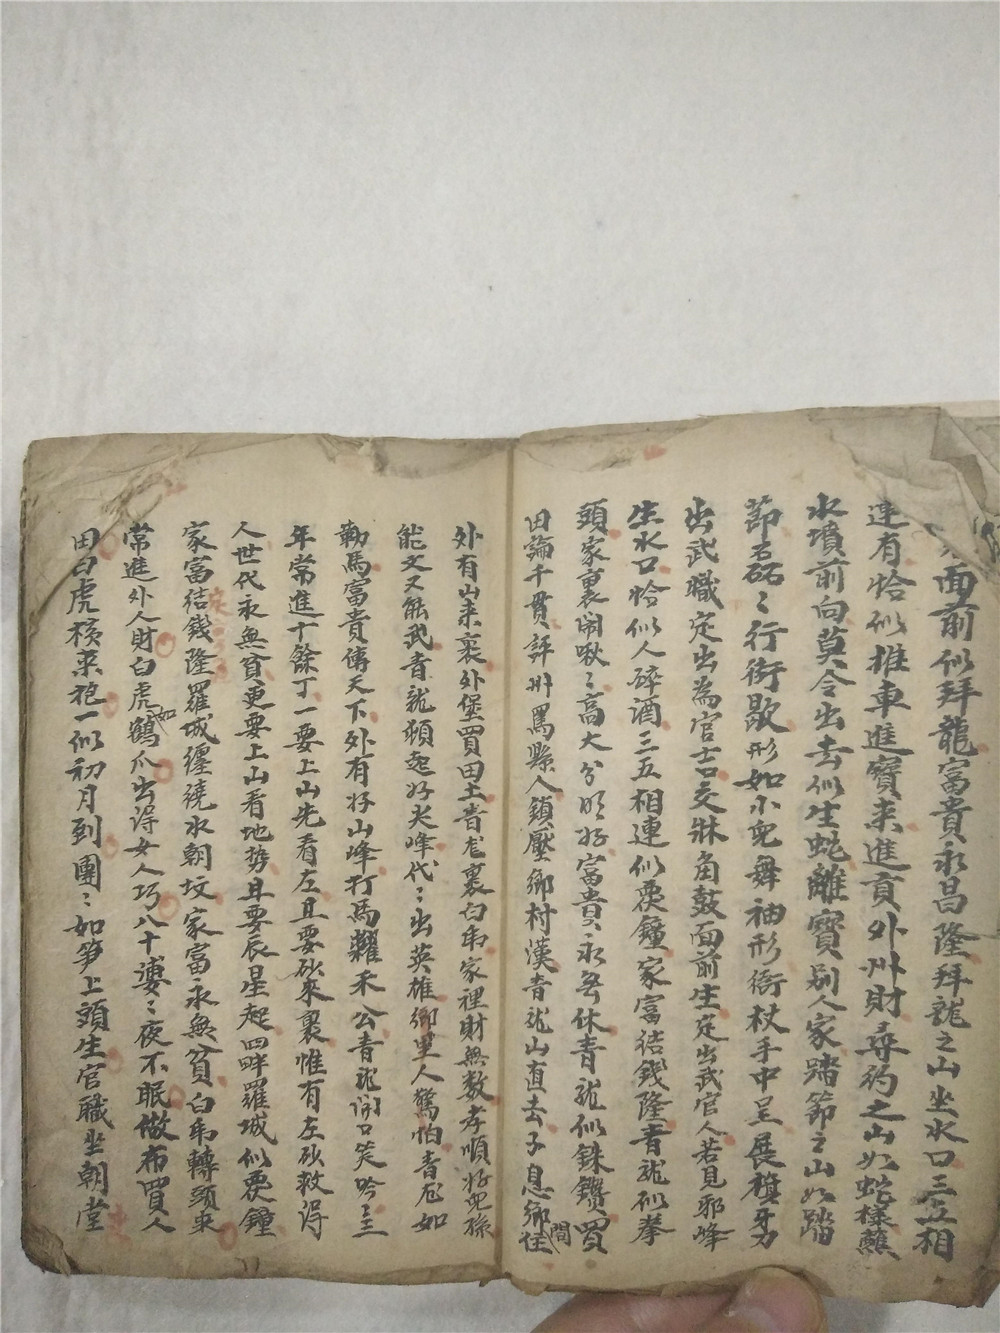 面前似拜龍富貴永昌隆拜龍之山坐水口三五相
連有恰似推車進寶来進貢外州財尋灼之山如蛇樣蘸
水墳前向莫令出去似生蛇離寶别人家踏節之山如踏
節磊〻行街歇形如小兜舞袖形衙杖手中呈展旗牙刀
出武職定出為官士口交牀角鼓面前生定出武官人若見邪峰
生水口恰似人碎酒三五相連似覆鐘家富结錢隆青龍似拳
頭家裏闹啾〻高大分明好富貴永無休青龍似銖鑽買
田論千貫評州罵縣人鎖壓鄉村漢青龍山直去子息鄉間住
外有山来裏外堡買田土青龙裏白帍家裡財無数孝順好兜孫
能文又能武青龍頭起好尖峰代〻出英雄鄉里人驚怕青龙如
勒馬富貴傳天下外有好山峰打馬糶禾公青龍開口笑吟〻三
年常進十餘丁一要上山先看左且要砂来裹惟有左砂救得
人世代永無貧更要上山看地勢且要辰星起四畔羅城似覆鐘
家富结錢隆羅城纏繞水朝坟家富永無貧白帍轉頭来
常進外人財白虎如鶴爪出得女人巧八十婆〻夜不眠做布買人
田白虎㧡来抱一似初月到團〻如笋上頭生官職坐朝堂